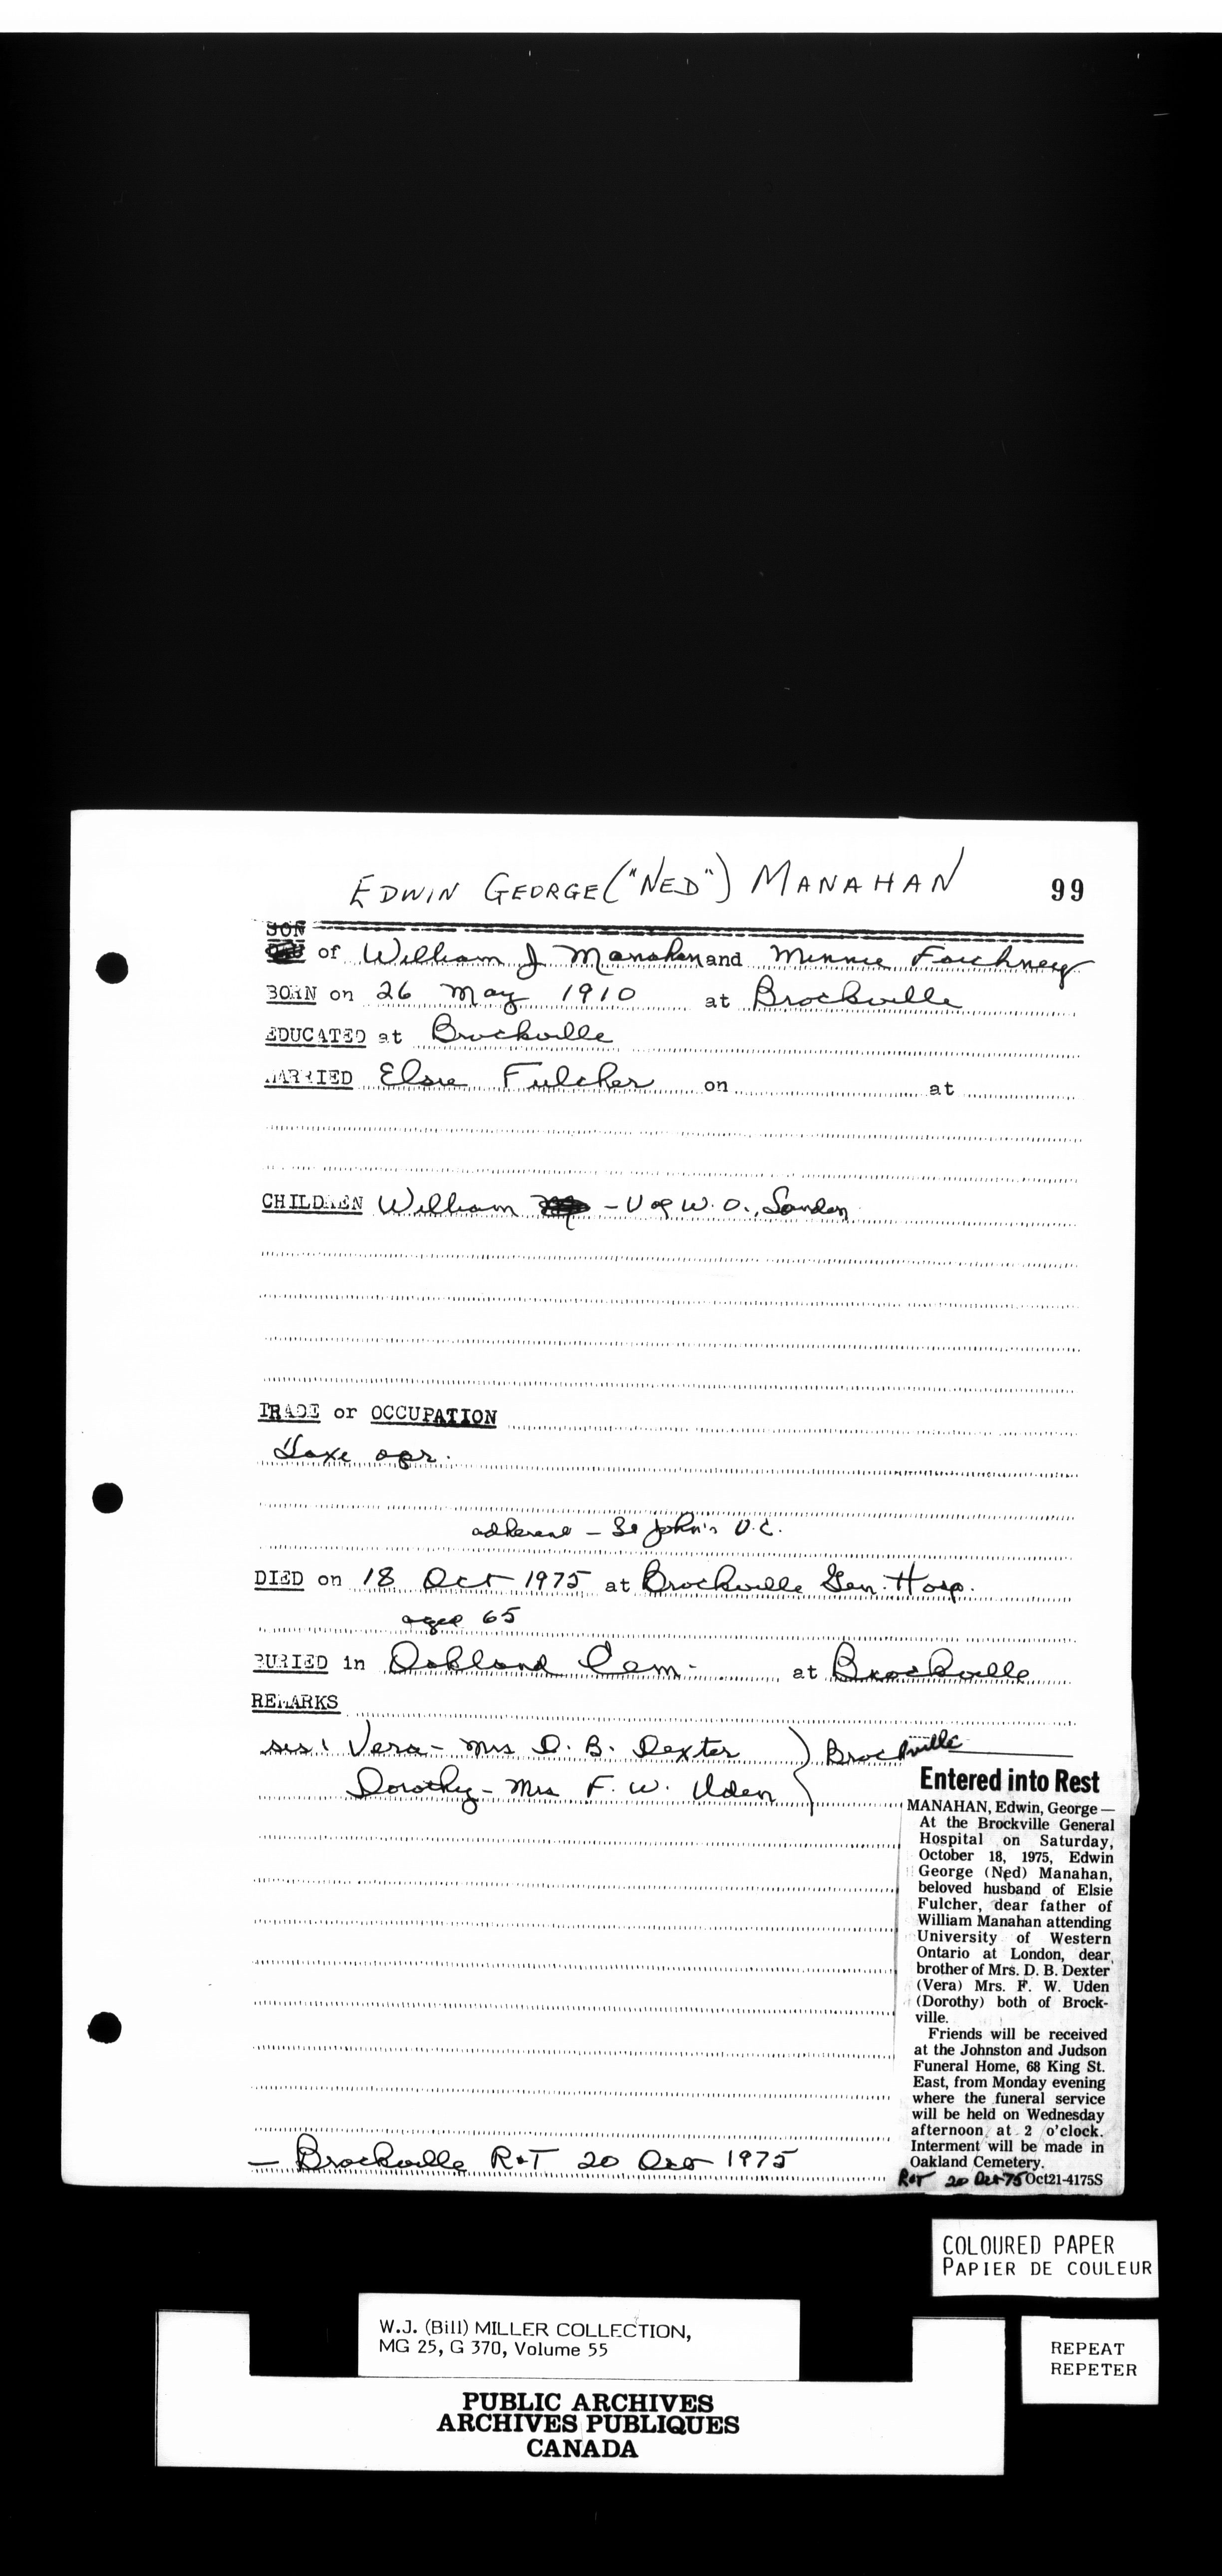 EDWIN GEORGE ("NED") MANAHAN 99
SON
of William J Manahan and Minnie Forchney
BORN on 26 May 1910 at Brockville
EDUCATED at Brockville
MARRIED Elsie Fulcher on at
CHILDREN William - U of W.O., London
TRADE or OCCUPATION
Taxi opr.
adherent - St John's U.C.
DIED on 18 Oct 1975 at Brockville Gen. Hosp.
aged 65
BURIED in Oakland Cem. at Brockville
REMARKS
sis: Vera - Mrs D. B. Dexter } Brockville
Dorothy - Mrs F. W. Uden
Entered into Rest
MANAHAN, Edwin, George —
At the Brockville General
Hospital on Saturday,
October 18, 1975, Edwin
George (Ned) Manahan,
beloved husband of Elsie
Fulcher, dear father of
William Manahan attending
University of Western
Ontario at London, dear
brother of Mrs. D. B. Dexter
(Vera) Mrs. F. W. Uden
(Dorothy) both of Brock-
ville.
Friends will be received
at the Johnston and Judson
Funeral Home, 68 King St.
East, from Monday evening
where the funeral service
will be held on Wednesday
afternoon at 2 o'clock.
Interment will be made in
Oakland Cemetery.
R+T 20 Oct 75 Oct21-4175S
— Brockville R+T 20 Oct 1975
COLOURED PAPER
PAPIER DE COULEUR
W.J. (Bill) MILLER COLLECTION,
MG 25, G 370, Volume 55
REPEAT
REPETER
PUBLIC ARCHIVES
ARCHIVES PUBLIQUES
CANADA